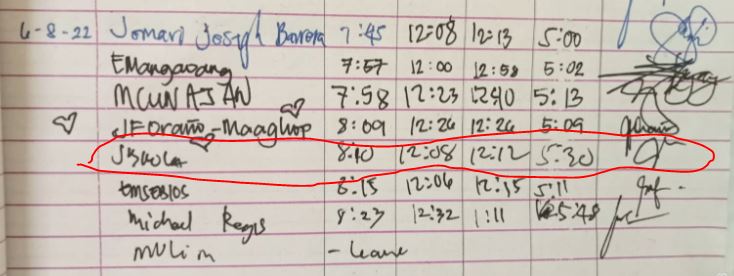 6-8-22 Jomari Joseph Barrera 7:45 12:08 12:13 5:00
EMangaoang 7:57 12:00 12:58 5:02
MCUNAJAN 7:58 12:23 12:40 5:13
JFOraño-Maaghop 8:09 12:26 12:26 5:09
8:10 12:08 12:12 5:30
8:15 12:06 12:15 5:11
Michael Regis 8:23 12:32 1:11 5:48
- leave